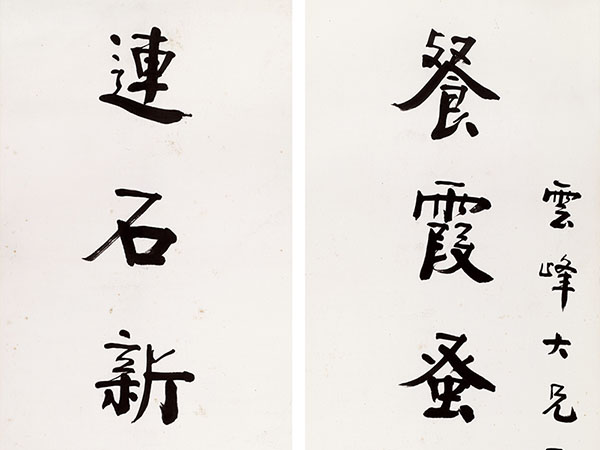 雲峰大兄
餐霞蚤
連石新